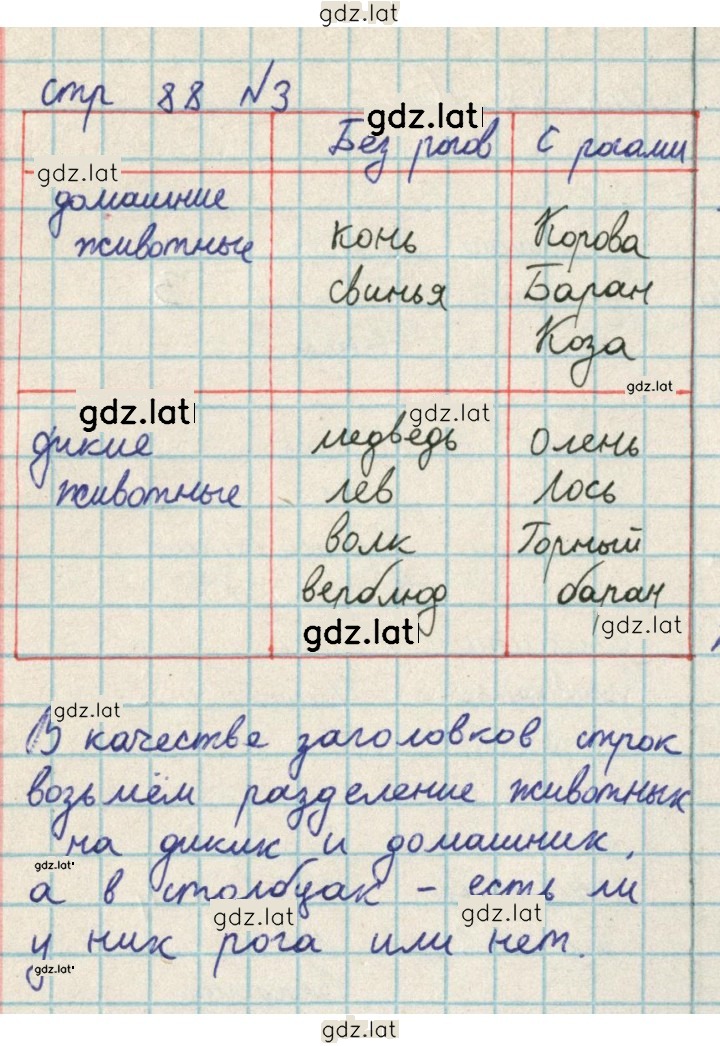 gdz.lat
стр 88 №3
gdz.lat
Без рогов С рогами
gdz.lat
домашние
животные
конь Корова
свинья Баран
Коза
gdz.lat
gdz.lat gdz.lat
дикие медведь Олень
животные лев Лось
волк Горный
верблюд баран
gdz.lat gdz.lat
gdz.lat
В качестве заголовков строк
возьмём разделение животных
на диких и домашних,
gdz.lat
а в столбцах - есть ли
gdz.lat gdz.lat
у них рога или нет.
gdz.lat
gdz.lat